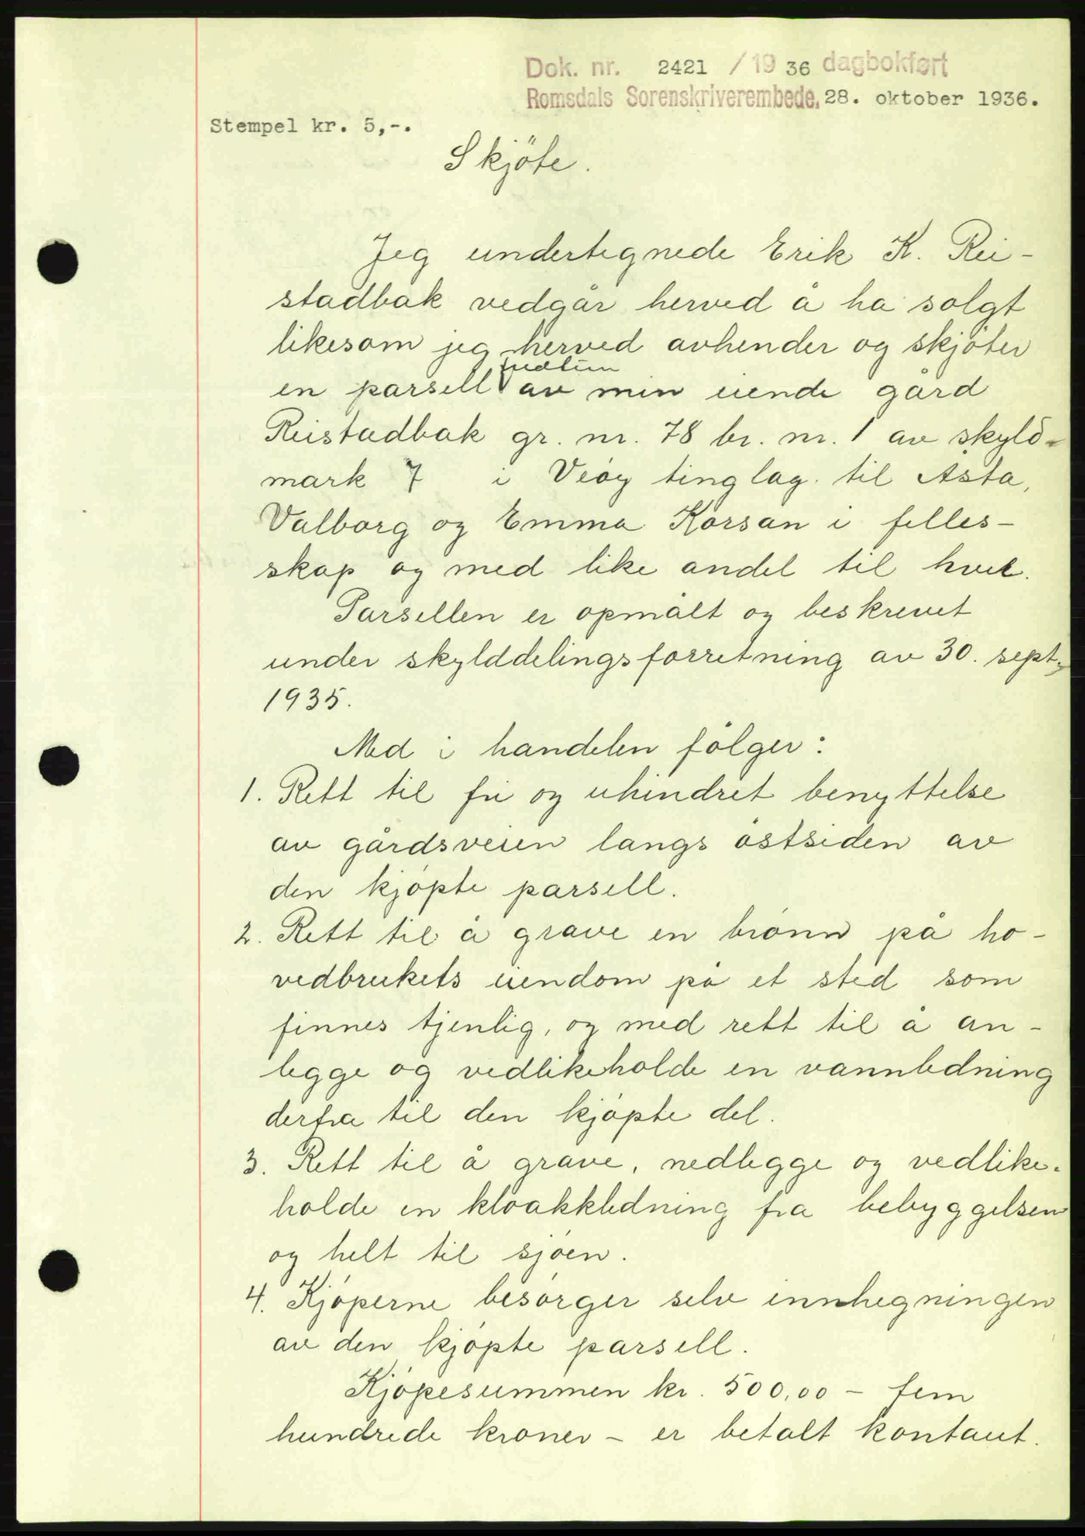 Dok. nr. 2421 / 19 36 dagbokført
Romsdals Sorenskriverembede. 28. oktober 1936.
Stempel kr. 5,-.
Skjöte.
Jeg undertegnede Erik K. Rei-
stadbak vedgår herved å ha solgt
likesom jeg herved avhender og skjöter
en parsell av min eiende gård
Reistadbak gr. nr. 78 br. nr. 1 av skyld-
mark 7 i Veöy tinglag til Ásta,
Valborg og Emma Korsan i felles-
skap og med like andel til hver.
Parsellen er opmålt og beskrevet
under skylddelingsforretning av 30. sept.
1935.
Med i handelen fölger:
1. Rett til fri og uhindret benyttelse
av gårdsveien langs östsiden av
den kjöpte parsell.
2. Rett til å grave en brönn på ho-
vedbrukets eiendom på et sted som
finnes tjenlig, og med rett til å an-
legge og vedlikeholde en vannledning
derfra til den kjöpte del.
3. Rett til å grave, nedlegge og vedlike-
holde en kloakkledning fra bebyggelsen
og helt til sjöen.
4. Kjöperne besörger selv innhegningen
av den kjöpte parsell.
Kjöpesummen kr. 500,00 - fem
hundrede kroner - er betalt kontant.